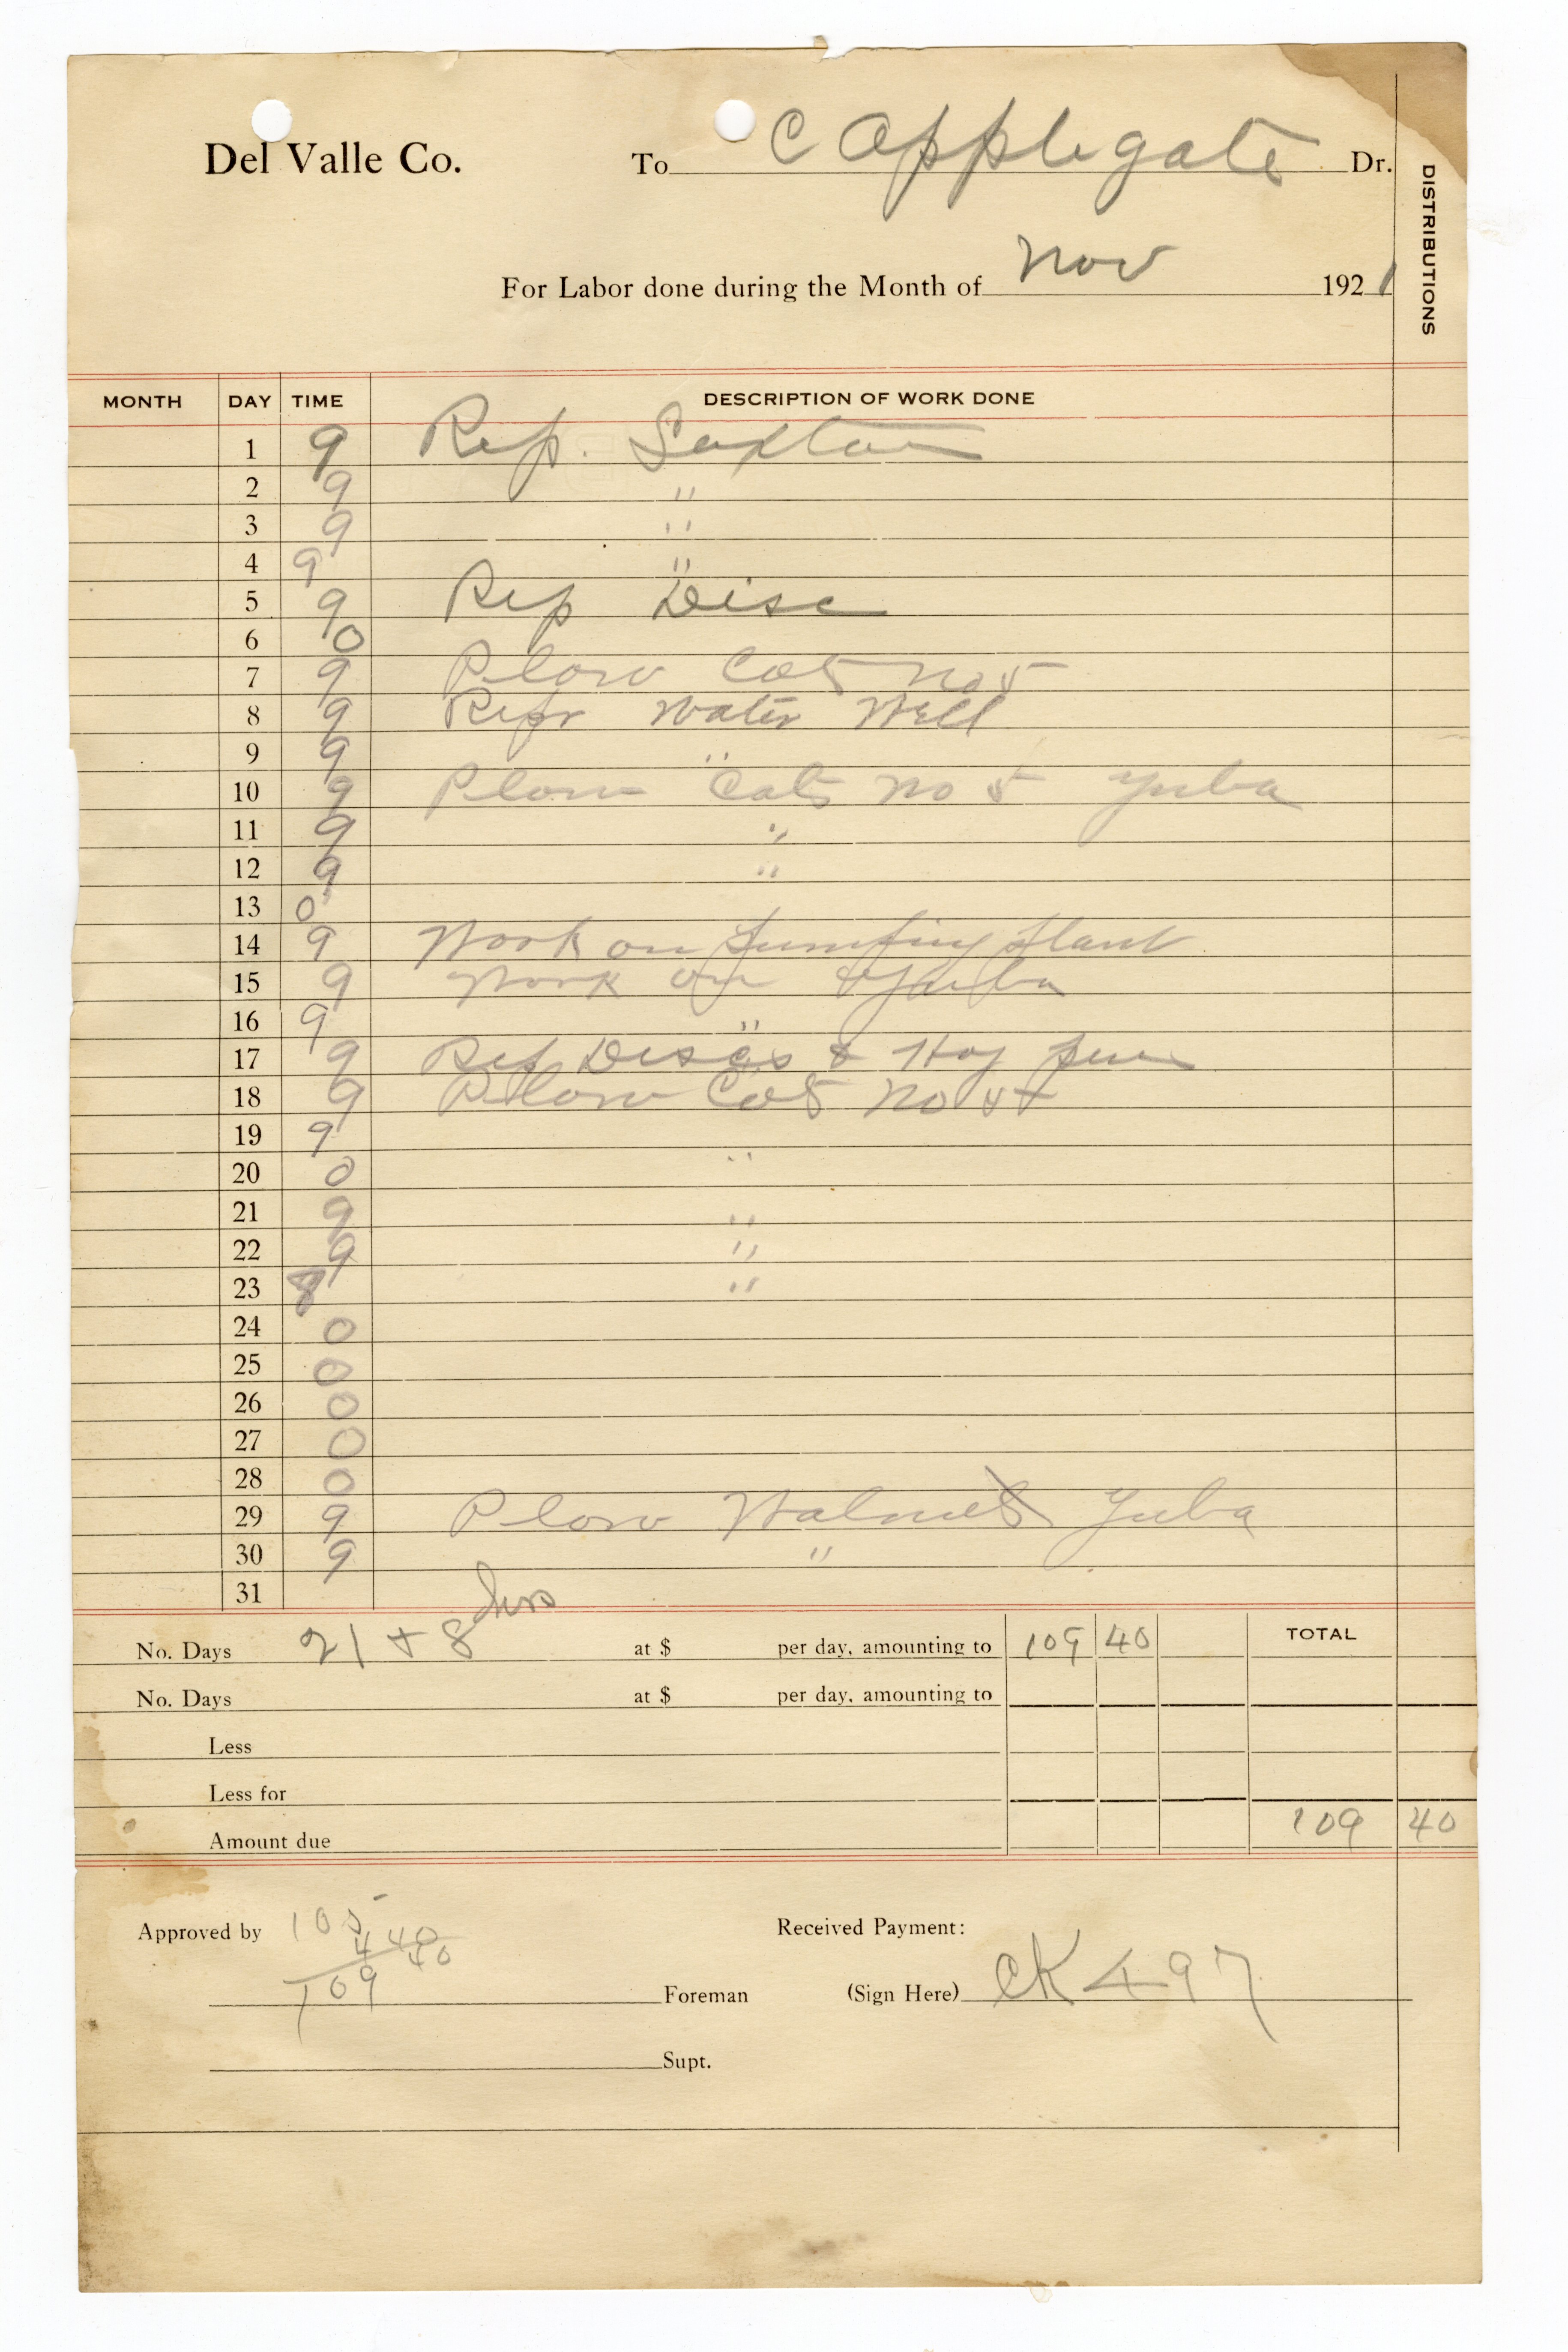 Del Valle Co. To C Applegate Dr.
DISTRIBUTIONS
For Labor done during the Month of Nov 1921
MONTH DAY TIME DESCRIPTION OF WORK DONE
1 9 Rep. Saxton
2 9 "
3 9 "
4 9 "
5 9 Rep Disc
6 0
7 9 Plow Cat No 5
8 9 Repr Water Well
9 9 "
10 9 Plow Cat No 5 Yuba
11 9 "
12 9 "
13 0
14 9 Work on Pumping Plant
15 9 Work on Yuba
16 9 "
17 9 Rep Discs & Hog
18 9 Plow Cat No
19 9 "
20 0
21 9 "
22 9 "
23 8 "
24 0
25 0
26 0
27 0
28 0
29 9 Plow Walnuts Yuba
30 9 "
31
No. Days 21 + 8 hrs at $ per day, amounting to 109 40 TOTAL
No. Days at $ per day, amounting to
Less
Less for
Amount due 109 40
Approved by 105 Received Payment:
4 40
109 40
Foreman (Sign Here) CK 497
Supt.